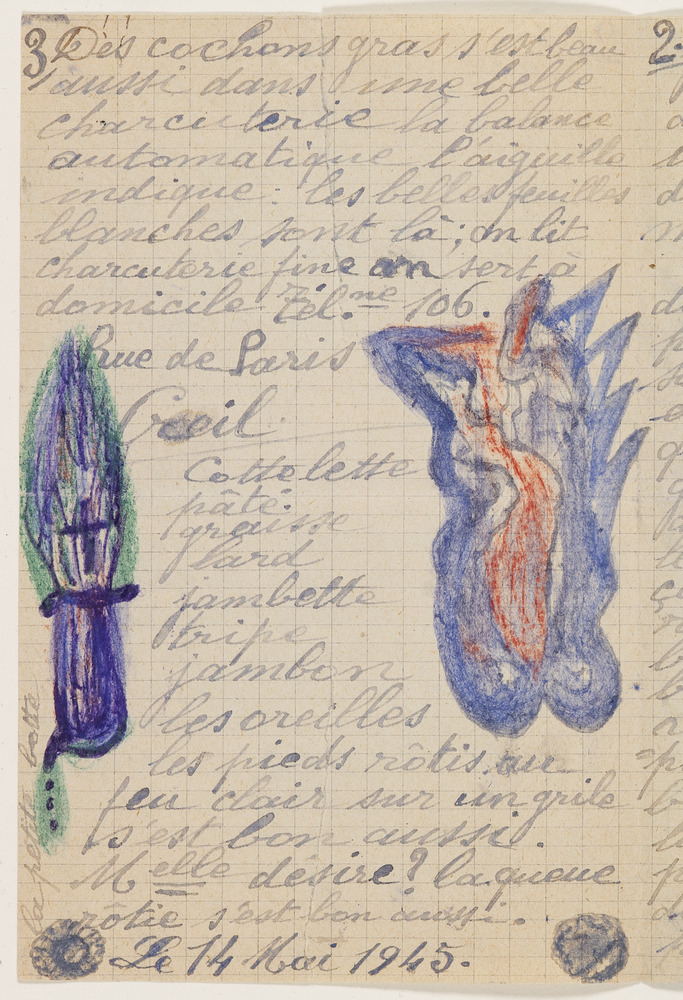 3, Des cochons gras s'est beau
aussi dans une belle
charcuterie la balance
automatique l'aiguille
indique: les belles feuilles
blanches sont là; on lit
charcuterie fine on sert à
domicile Tél.ne 106.
Rue de Paris
Creil
Cottelette
pâté.
graisse
lard
jambette
tripe
jambon
les oreilles
les pieds rôtis au
feu clair sur un grile
s'est bon aussi.
Melle désire? la queue
rôtie s'est bon aussi.
Le 14 Mai 1945.
la petite botte
2.